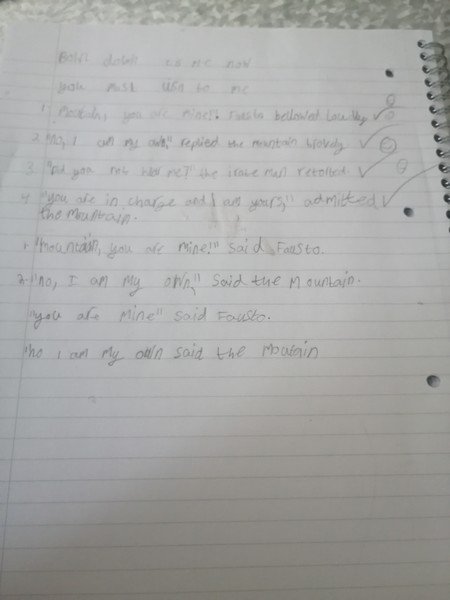 down is me now
you must to me
1. Mountain, you are mine!" Fausto bellowed Loudly
2. "No, I am my own," replied the mountain bravely
3. "Did you not hear me?" the brave man retorted.
4. "you are in charge and I am yours," admitted
the Mountain.
1. "mountain, you are mine!" said Fausto.
2. "no, I am my own," said the Mountain.
"you are mine" said Fausto.
"no I am my own said the Moutain